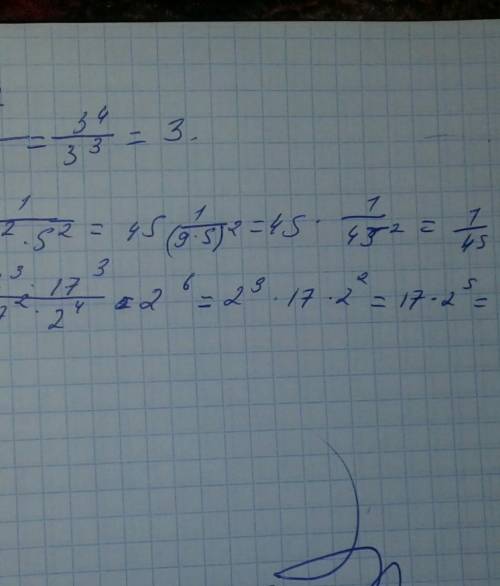 = 3^4/3^3 = 3.
1/(^2 · 5^2) = 45 1/(9·5)^2 = 45 · 1/45^2 = 1/45
^3 · 17^3/(7^2 · 2^4) = 2^6 = 2^3 · 17 · 2^2 = 17 · 2^5 =